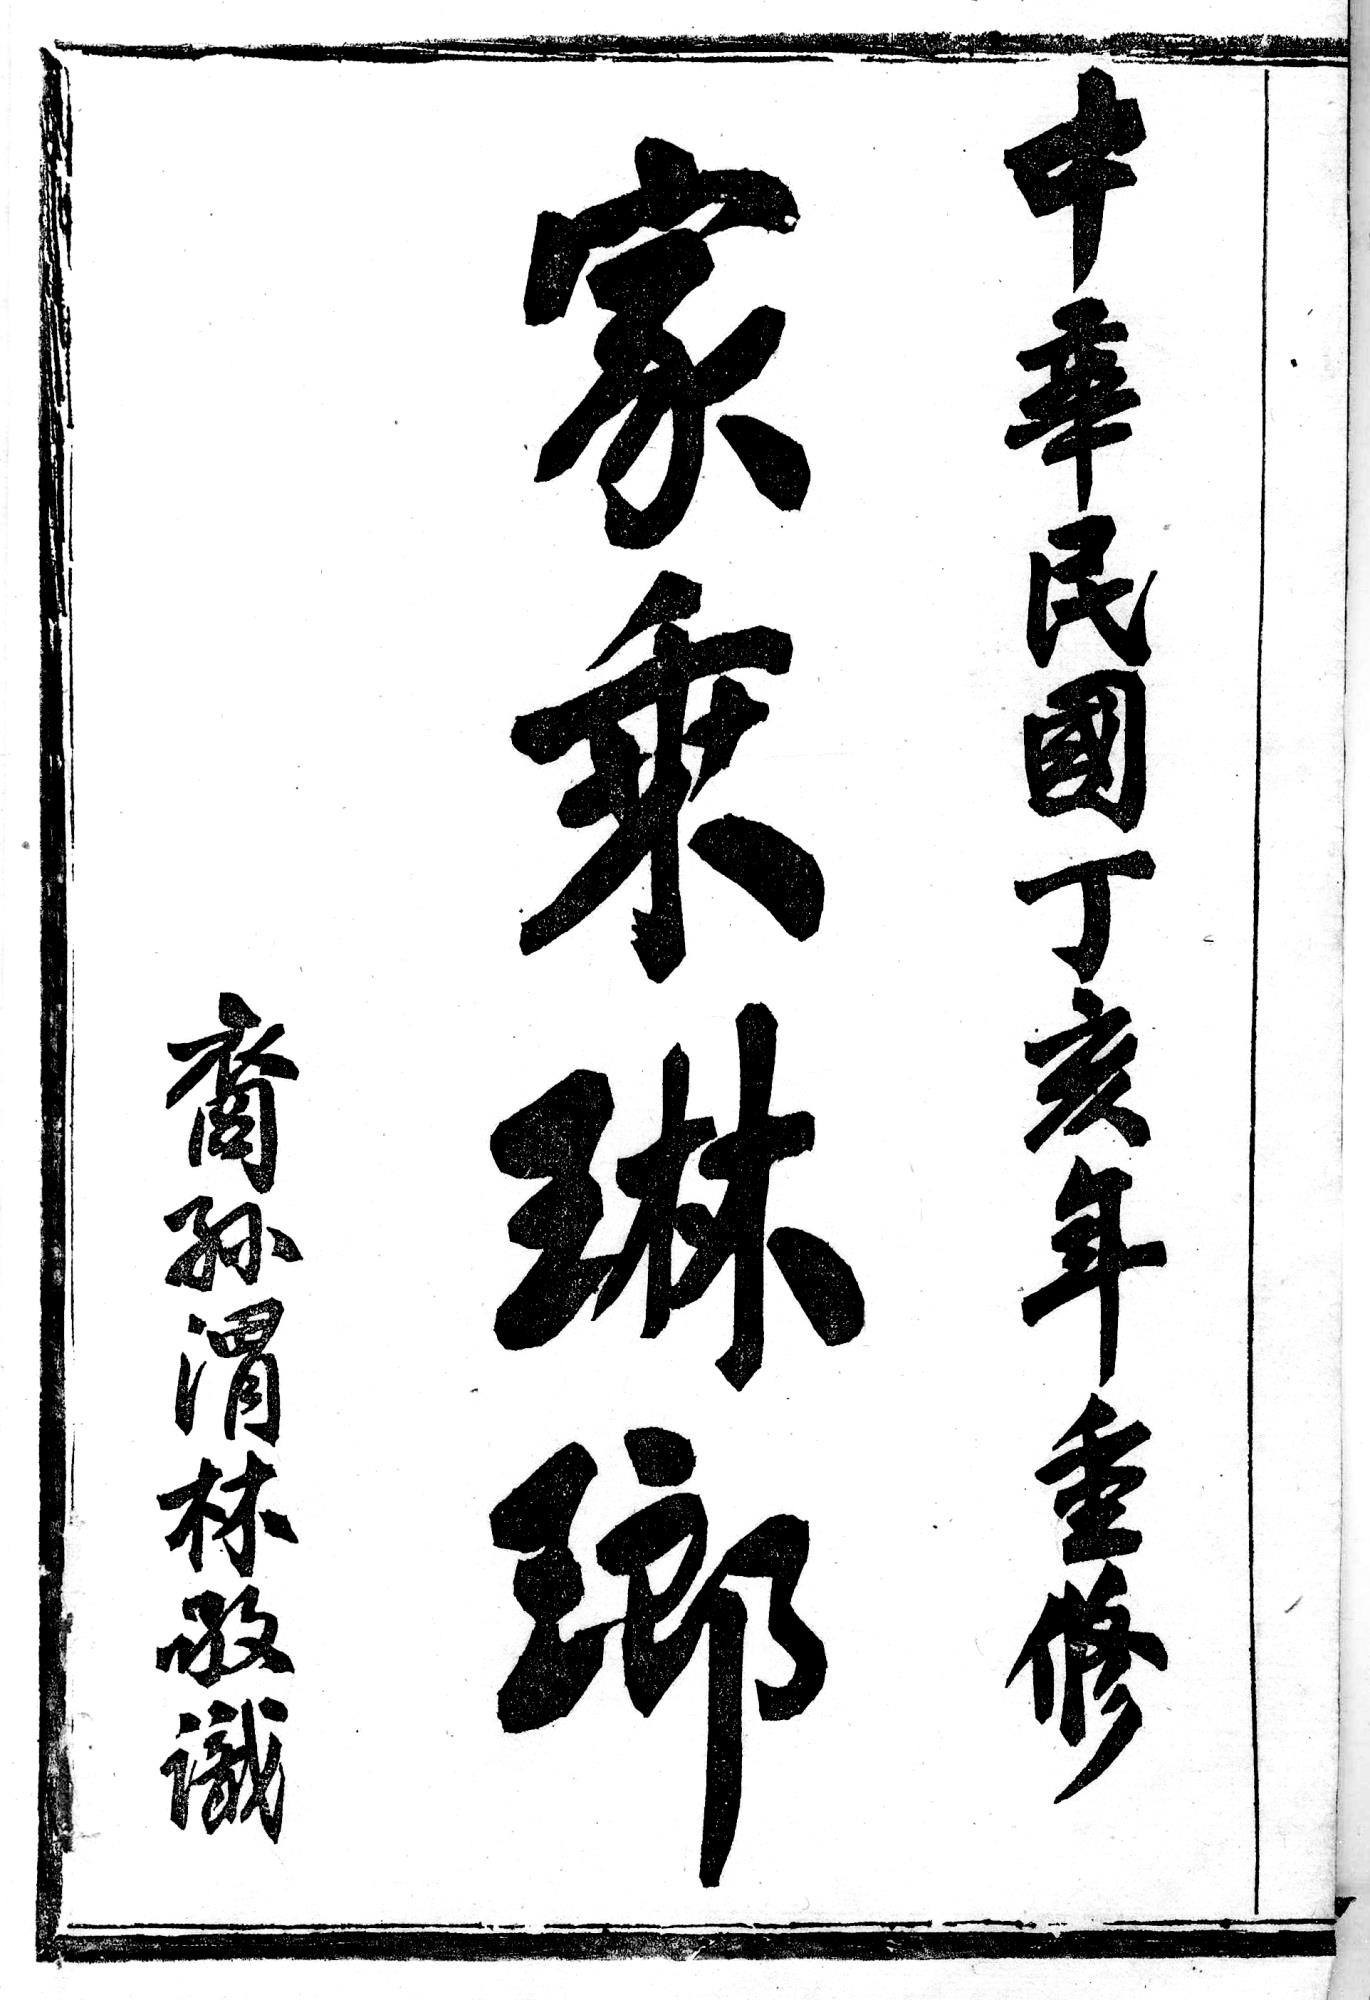 中華民國丁亥年重修
家乘琳瑯
裔孫渭林敬識